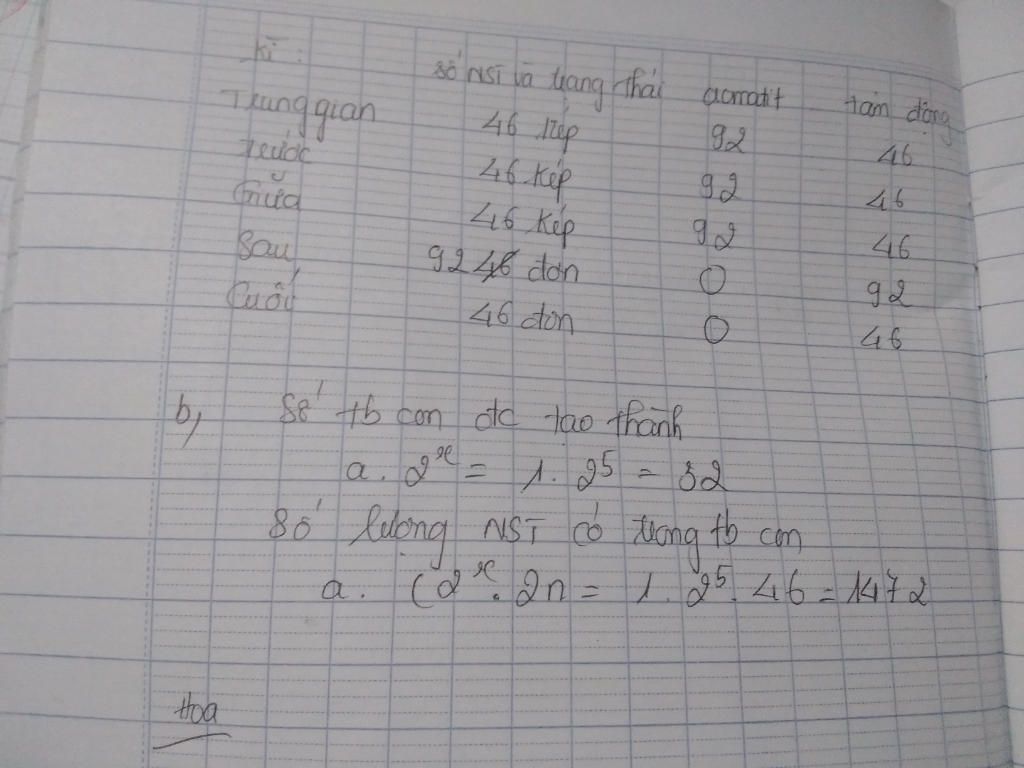 Kì : số NST và trạng thái acmatit tâm động
Trung gian 46 kép 92 46
Trước 46 kép 92 46
Giữa 46 kép 92 46
Sau 92 46 đơn 0 92
Cuối 46 đơn 0 46
b, Số tb con đc tạo thành
a. 2^x = 1. 2^5 = 32
Số lượng NST có trong tb con
a. (2^x . 2n = 1. 2^5. 46 = 1472
Hoa